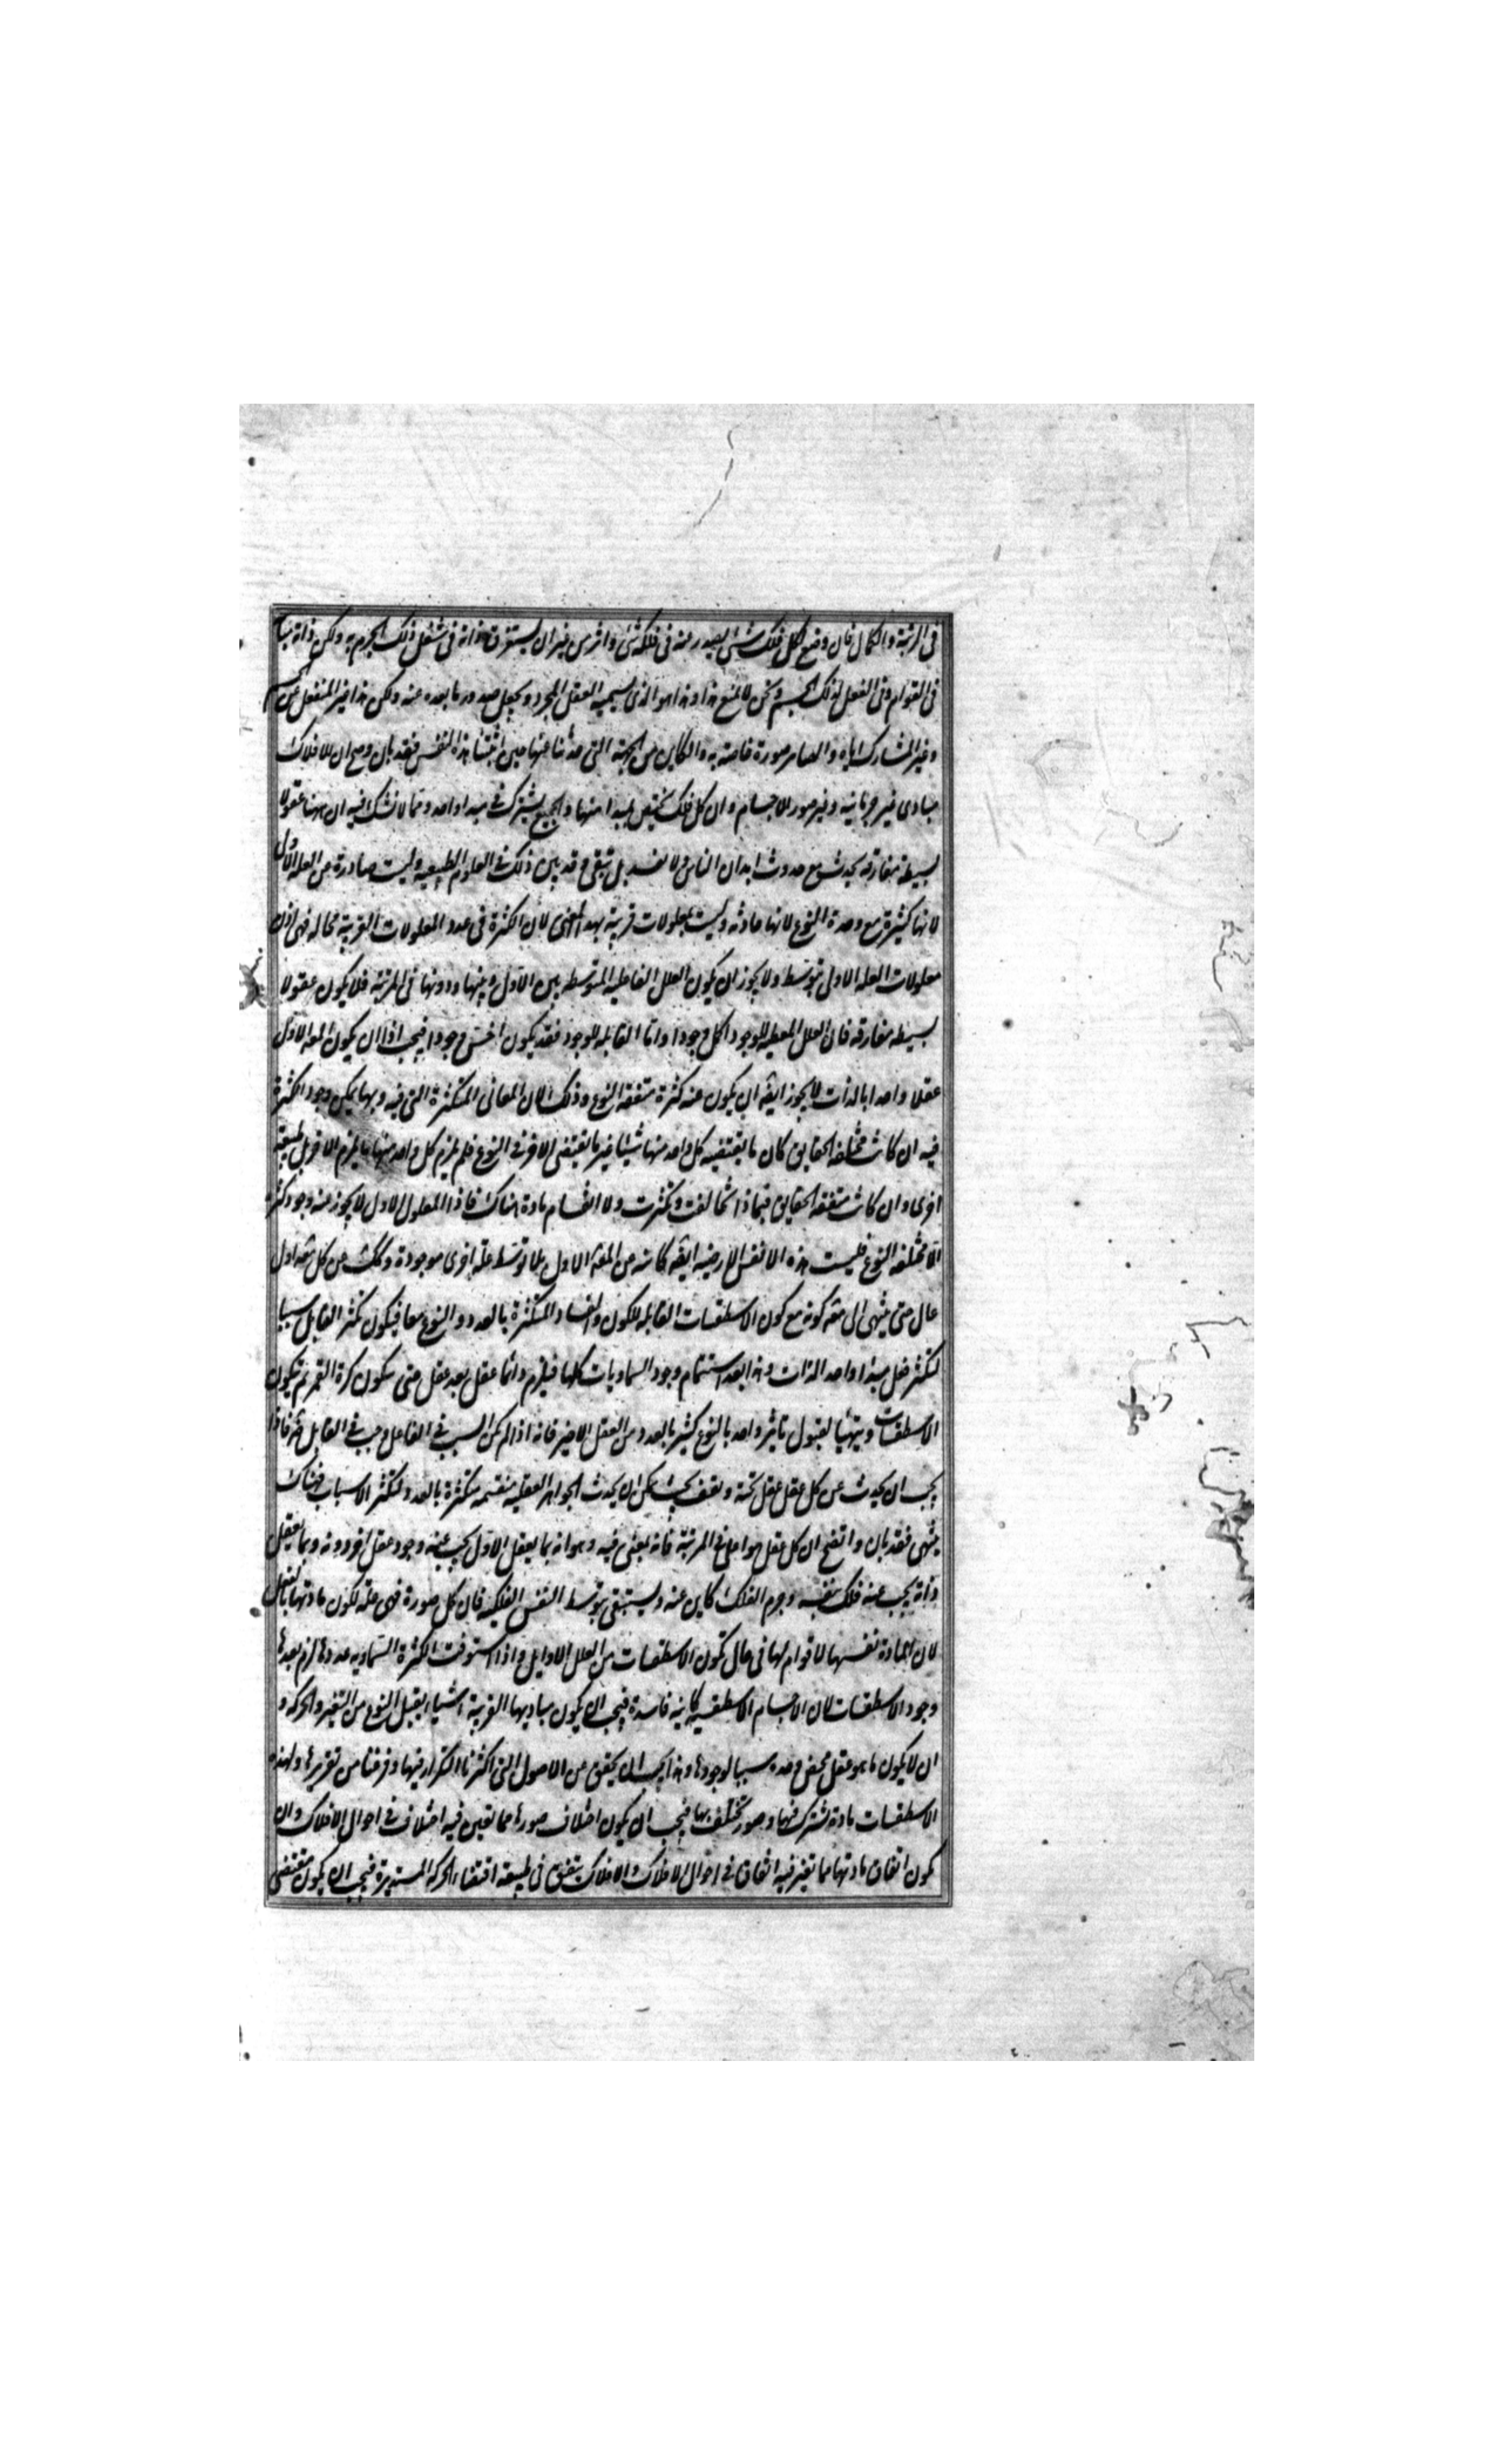 فى الرتبة والكمال فان وضع لكل فلك شئ يصدر عنه فى فلكه شئ واثر من غير ان يستغرق ذاته فى شغل ذلك الجرم به ولكن ذاته مباينة
فى القوام وفى الفعل لذلك الجسم ونحن لا نمنع هذا وهذا هو الذى نسميه العقل المجرد ونجعل صدور ما بعده عنه ولكن هذا غير المنفعل عن الجسم
وغير المشارك اياه والصاير صورة خاصة به والكاين من الجهة التى حدثنا عنها حين اثبتنا هذه النفس فقد بان وصح ان للافلاك
مبادى غير جرمانيه وغير صور الاجسام وان كل فلك يختص بمبدا منها والجميع يشترك فى مبدا واحد ومما لا نشك فيه ان ههنا عقولا
بسيطة مفارقه تحدث مع حدوث ابدان الناس ولا تفسد بل تبقى وقد بين ذلك فى العلوم الطبيعيه وليست صادرة عن العله الاولى
لانها كثيرة مع وحدة النوع لانها حادثه وليست بمعلولات قريبة بهذا المعنى لان الكثرة فى عدد المعلولات القريبة محاله فهى اذن
معلولات العله الاولى بتوسط ولا يجوز ان يكون العلل الفاعليه المتوسطه بين الاول وبينها ودونها فى المرتبة فلا يكون عقولا
بسيطه مفارقه فان العلل المعطيه للوجود اكمل وجودا واما القابله للوجود فقد يكون اخس وجودا فيجب اذا ان يكون المعه الاول
عقلا واحدا بالذات لا يجوز ايضه ان يكون عنه كثرة متفقه النوع وذلك لان المعانى المتكثرة التى فيه وبها يمكن وجود الكثرة
فيه ان كانت مختلفه الحقايق كان ما يقتضيه كل واحد منها شيئا غير ما يقتضى الاخر فى النوع فلم يلزم كل واحد منها ما يلزم الاخر بل طبيعة
اخرى وان كانت متفقه الحقايق فبماذا تخالفت وتكثرت ولا انقسام مادة هناك فاذا المعلول الاول لا يجوز عنه وجود كثرة
الا مختلفه النوع فليست هذه الانفس الارضيه ايضه كاينه عن المعه الاول بلا توسط علة اخرى موجودة وكك عن كل معه اول
عال حتى ينتهى الى معه كونه مع كون الاسطقسات القابله للكون والفساد المتكثرة بالعدد والنوع معا فيكون تكثر القابل سببا
لتكثر فعل مبدا واحد الذات وهذا بعد استتمام وجود السماويات كلها فيلزم دائما عقل بعد عقل حتى يتكون كرة القمر ثم يتكون
الاسطقسات ويتهيا لقبول تاثير واحد بالنوع كثير بالعدد من العقل الاخير فانه اذا لم يكن السبب فى الفاعل وجب فى القابل ضرة فاذا
يجب ان يحدث عن كل عقل عقل تحته ويقف بحيث يمكن ان يحدث الجواهر العقليه منقسمه متكثرة بالعدد لتكثر الاسباب فهناك
ينتهى فقد بان واتضح ان كل عقل هو اعلى فى المرتبة فانه لمعنى فيه وهو انه بما يعقل الاول يجب عنه وجود عقل اخر دونه وبما يعقل
ذاته يجب عنه فلك بنفسه وجرم الفلك كاين عنه ويستبقى بتوسط النفس الفلكيه فان كل صورة فهى علة لكون مادتها بالفعل
لان المادة نفسها لا قوام لها فى حال تكون الاسطقسات من العلل الاوايل واذا استوفت الكثرة السماويه عددها لزم بعدها
وجود الاسطقسات لان الاجسام الاسطقسيه كاينه فاسدة فيجب ان يكون مباديها القريبة اشياء يقبل النوع من التغير والحركه و
ان لا يكون ما هو عقل محض وحده سببا لوجودها وهذا يجب ان يتحقق من الاصول التى اكثرنا التكرار فيها وفرغنا من تقريرها ولهذه
الاسطقسات مادة تشترك فيها وصور تختلف بها فيجب ان يكون اختلاف صورها مما يعين فيه اختلاف فى احوال الافلاك وان
يكون اتفاق مادتها مما تغير فيه اتفاق فى احوال الافلاك والافلاك يتفق فى طبيعه اقتضاء الحركه المستديرة فيجب ان يكون مقتضى